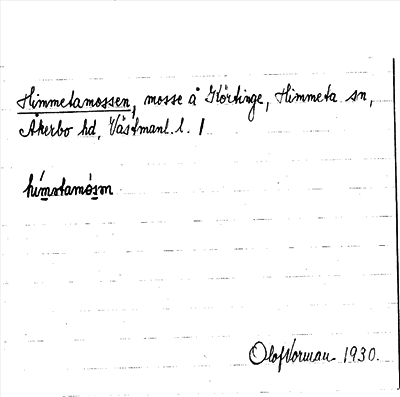 Himmetamossen, mosse å Körtinge, Himmeta sn,
Åkerbo hd, Västmanl. l. 1
hímətamòsən
Olof Norman 1930.